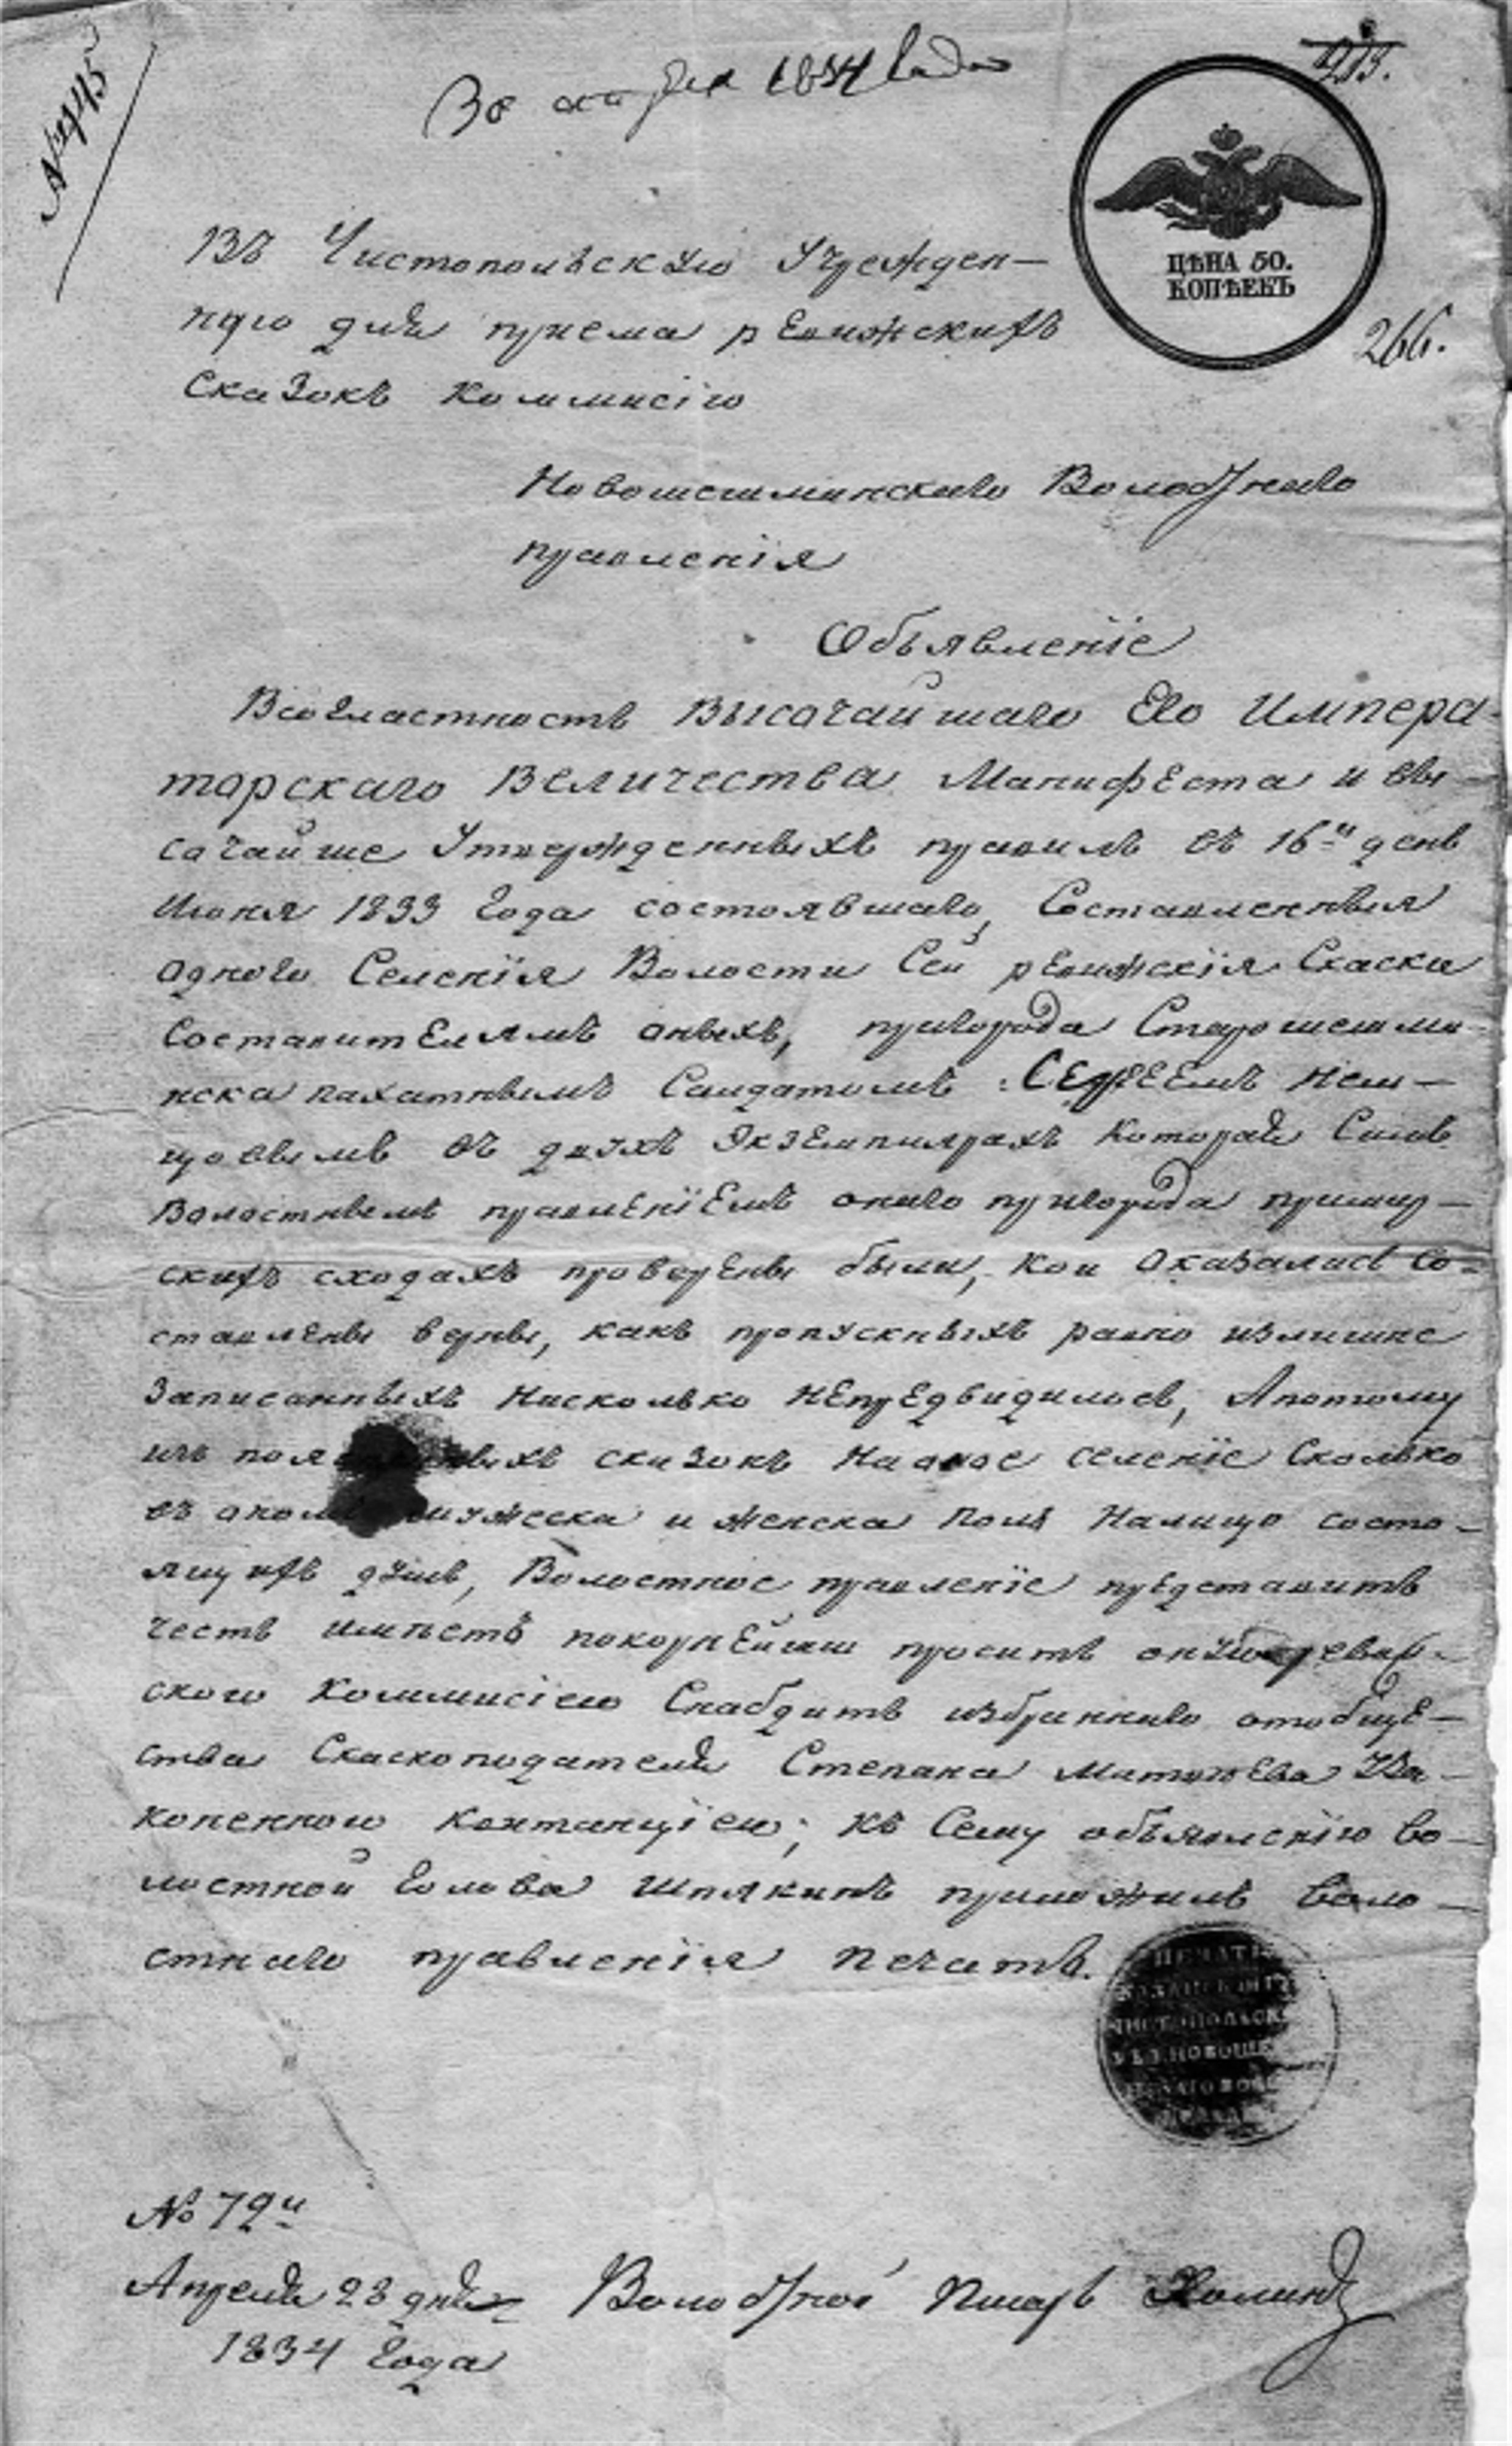 № 445
30 апреля 1834 года
213.
ЦѢНА 50.
КОПѢЕКЪ
266.
Въ Чистопольскую Учрежден—
ную для приема ревижскихъ
Сказокъ Коммисію
Новошешминскаго Волостнаго
правленія
Объявленіе
Всогластность Высочайшаго Его Импера-
торскаго Величества Манифеста и вы-
сочайше Утвержденныхъ правилъ въ 16й день
Июня 1833 Года состоявшаго, Составленныя
одного Селенія Волости Сей ревижскія Скаски
Составителямъ оныхъ, пригорода Старошешми-
нска пахатнымъ Салдатомъ Сергеемъ Нем-
цовымъ въ двухъ Экземплярахъ которыя Симъ
Волостнымъ правленіемъ онаго пригорода примир—
скихъ сходахъ проверены были, кои Оказались Со-
ставлены верны, какъ пропускныхъ равно излишне
Записанныхъ Нисколько Непредвидилось, Апотому
сказокъ На оное селеніе Сколько
въ оном мужеска и женска пола Налицо состо-
ящихъ душъ, Волостное правленіе представить
честь имѣетъ покорнейши просить оную ревиж-
скою Коммисіею Снабдить избраннаго отобще—
ства Скаскоподателя Степана Матвеева Уза-
коненною Квитанціею; Къ Сему объявленію во—
лостной Голова Шпякинъ приложилъ воло—
стнаго правленія печать.
ПЕЧАТЬ
КАЗАНСКОЙ Г
ЧИСТОПОЛЬСК
УЕЗ. НОВОШЕ
№ 72й
Апреля 23 дня Волостной Писарь Холинъ
1834 Года